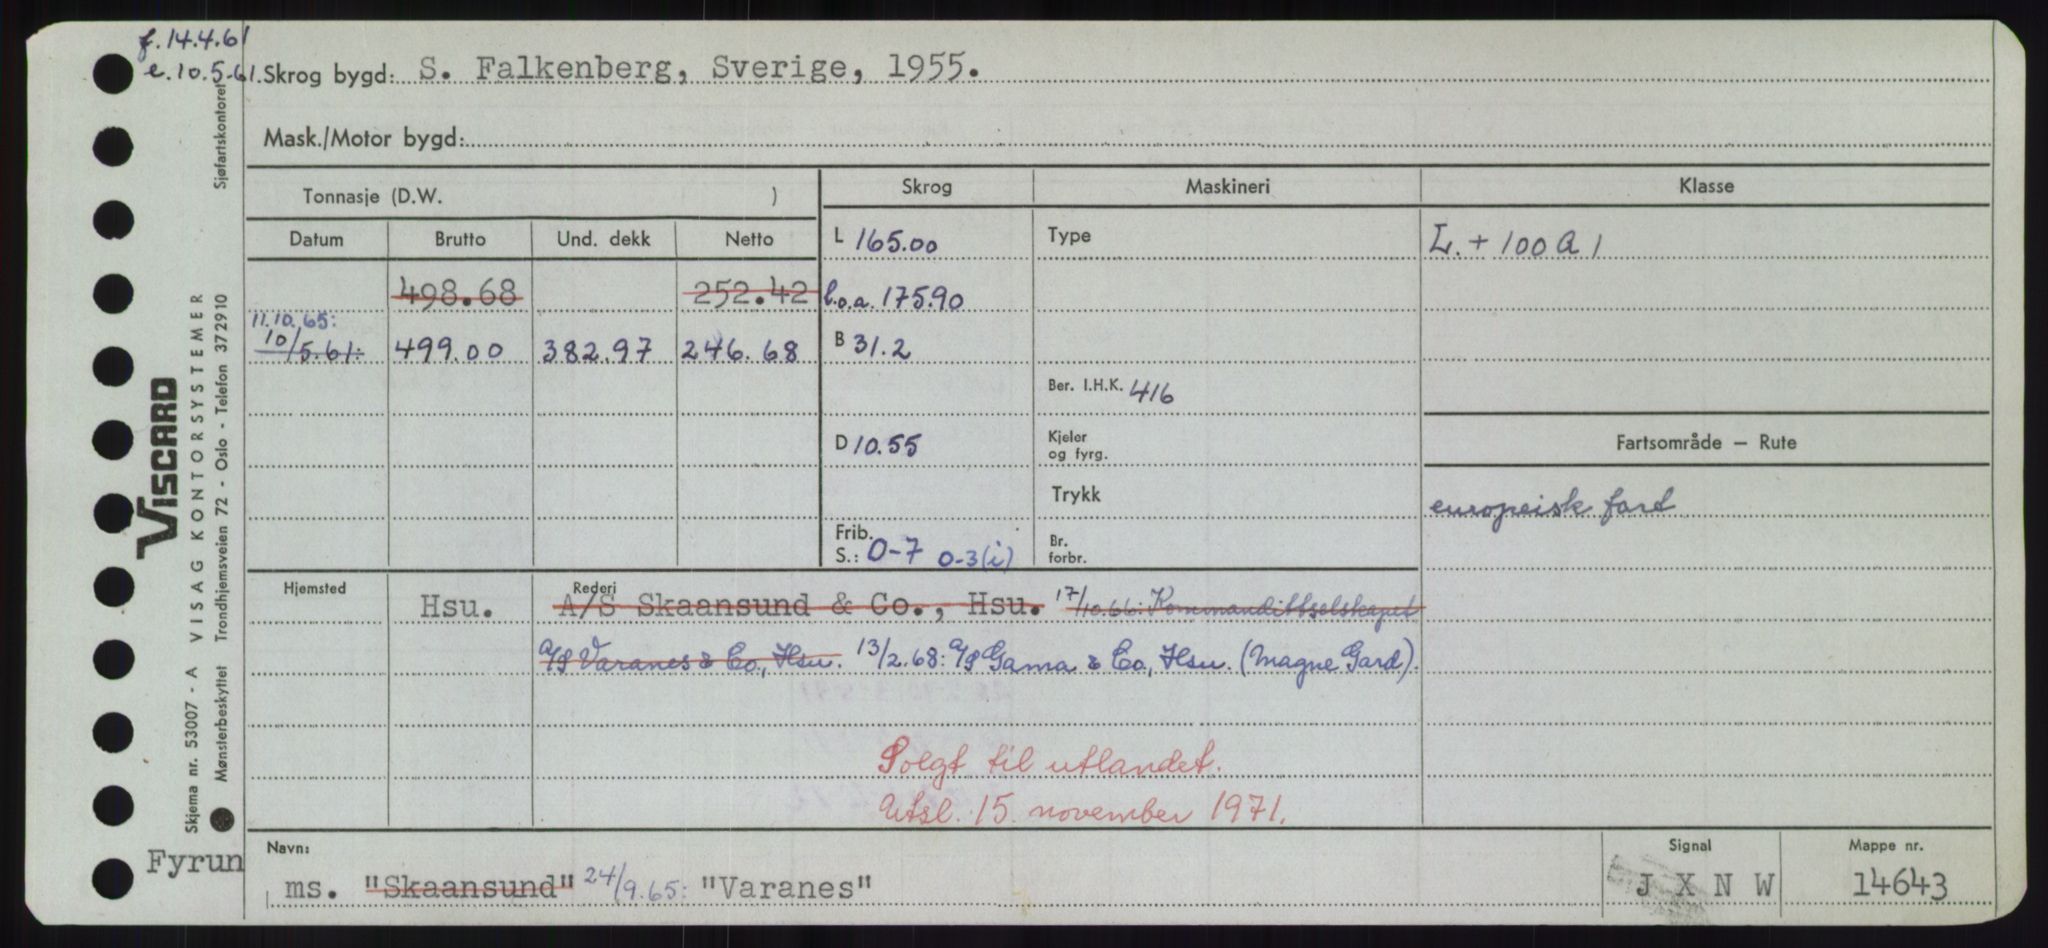 f. 14.4.61
e. 10.5.61.
Skrog bygd: S. Falkenberg, Sverige, 1955.
Mask./Motor bygd:
Tonnasje (D.W. )
Skrog
Maskineri
Klasse
Datum
Brutto
Und. dekk
Netto
L 165.00
Type
L. + 100 A 1
498.68
252.42
l.o.a. 175.90
11.10.65:
10/5.61:
499.00
382.97
246.68
B 31.2
Ber. I.H.K. 416
D 10.55
Kjeler
og fyrg.
Fartsområde — Rute
Trykk
europeisk fart
Frib.
S.: 0-7 0-3(i)
Br.
forbr.
Hjemsted
Rederi
Hsu.
A/S Skaansund & Co., Hsu. 17/10.66: Kommandittselskapet
A/S Varanes & Co., Hsu. 13/2.68: A/S Gama & Co., Hsu. (Magne Gard).
Solgt til utlandet.
Utsl. 15. november 1971.
Navn:
ms. "Skaansund" 24/9.65: "Varanes"
Signal
J X N W
Mappe nr.
14643
Fyrun
VISCARD
Skjema nr. 53007 - A VISAG KONTORSYSTEMER
Mønsterbeskyttet Trondhjemsveien 72 - Oslo - Telefon 37 29 10 Sjøfartskontoret